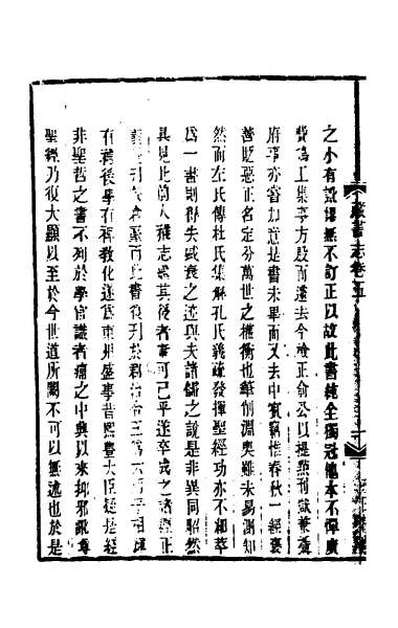 之小有訛謬無不訂正以故此書純全獨冠他本不憚廣
費鳩工集事方殷而遽去今檢正俞公以提點刑獄兼攝
府事亦嘗加意是書未畢而又去中實竊惟春秋一經褒
善貶惡正名定分萬世之權衡也筆削淵奥雖未易測知
然而左氏傳杜氏集解孔氏義疏發揮聖經功亦不細萃
為一書則得失盛衰之迹與夫諸儒之說是非異同昭然
具見此前人雕志
其後者
可已乎遂卒成之諸經正
義既刊
有補後學有裨教化遂為東州盛事昔熙豐大臣
經
非聖哲之書不列於學官識者痛之中興以來抑邪
聖經乃復大顯以至於今世道所關不可以無述也於是
藏書志卷五